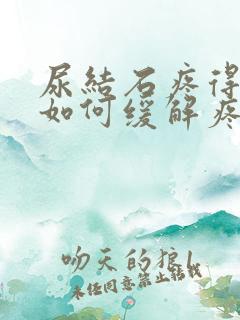 尿結石疼得
如何缓解疼
吻天的狼l
未经同意禁止转载